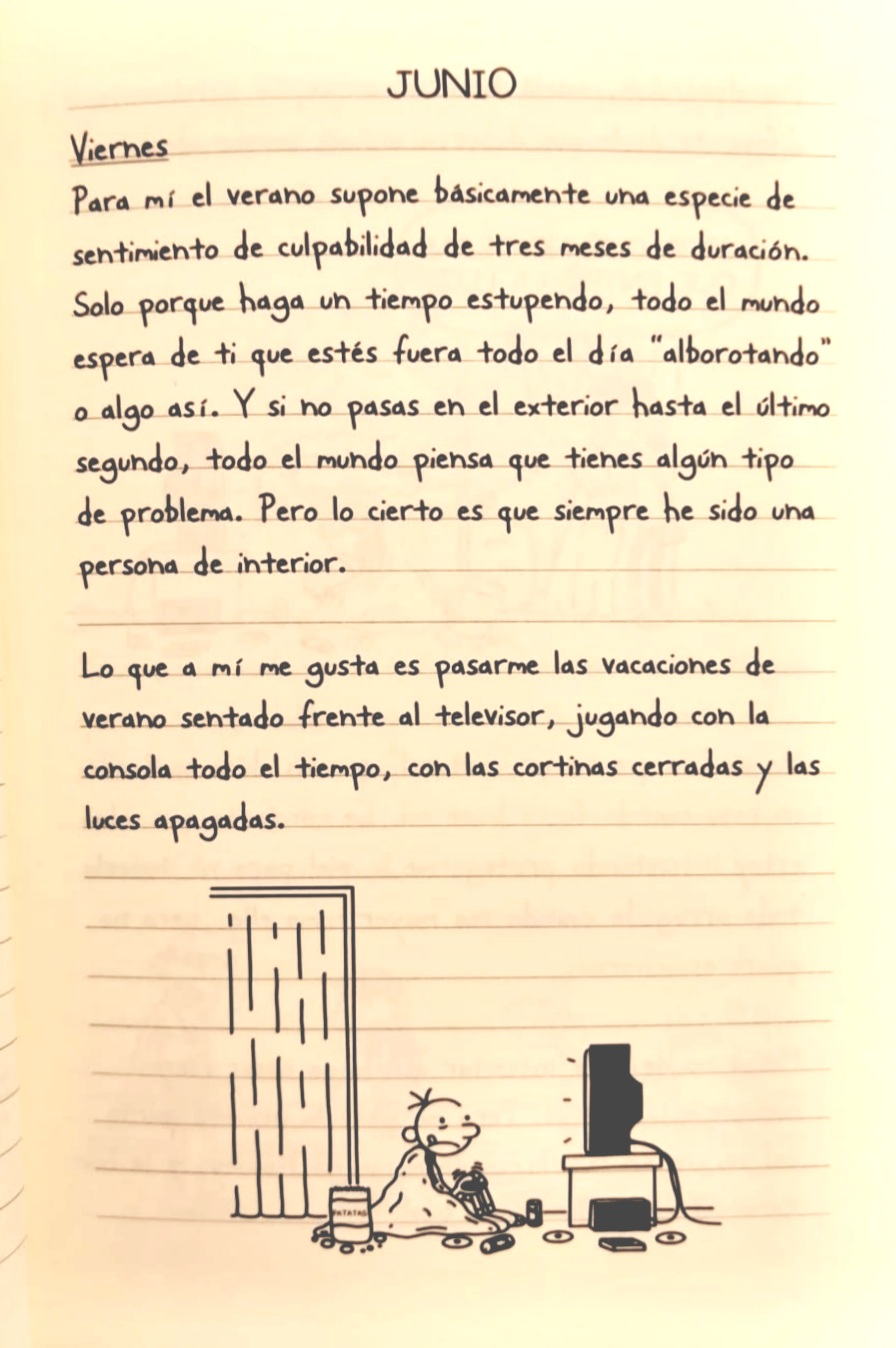 JUNIO
Viernes
Para mí el verano supone básicamente una especie de
sentimiento de culpabilidad de tres meses de duración.
Solo porque haga un tiempo estupendo, todo el mundo
espera de ti que estés fuera todo el día "alborotando"
o algo así. Y si no pasas en el exterior hasta el último
segundo, todo el mundo piensa que tienes algún tipo
de problema. Pero lo cierto es que siempre he sido una
persona de interior.
Lo que a mí me gusta es pasarme las vacaciones de
verano sentado frente al televisor, jugando con la
consola todo el tiempo, con las cortinas cerradas y las
luces apagadas.
PATATAS